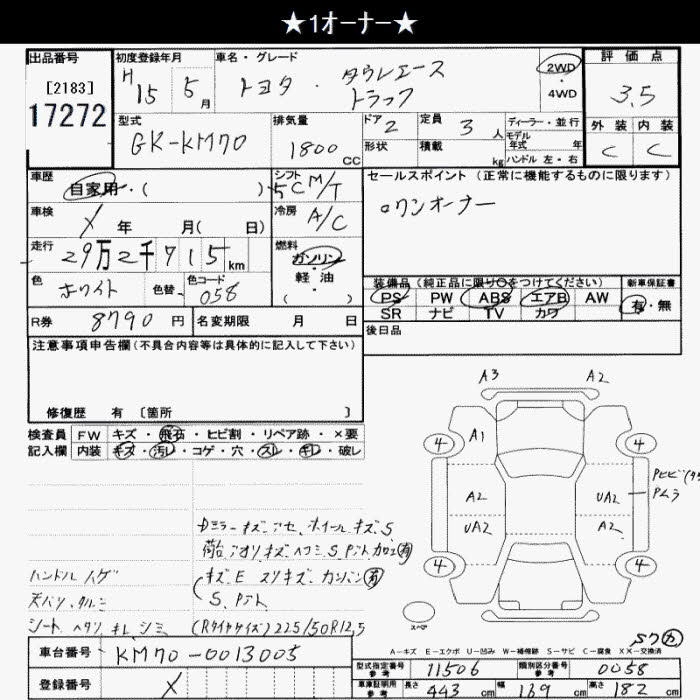 ★1ｵｰﾅｰ★
出品番号
[2183]
17272
初度登録年月
H15 5月
車名・グレード
トヨタ・タウンエーストラック
2WD・4WD
評価点
3.5
外装 内装
C C
型式
GK-KM70
排気量
1800 CC
ドア 2
定員 3 人
形状 積載 kg
ディーラー・並行
モデル年式 年
ハンドル 左・右
車歴
自家用・( )
シフト
5CM/T
車検
X 年 月( 日)
冷房
A/C
走行
29万2千715km
燃料
ガソリン・軽油・( )
色
ホワイト
色替
色コード
058
R券 8790 円
名変期限 月 日
セールスポイント(正常に機能するものに限ります)
○ワンオーナー
装備品(純正品に限り○をつけてください)
PS PW ABS エアB AW
SR ナビ TV カワ
新車保証書
有・無
後日品
注意事項申告欄(不具合内容等は具体的に記入して下さい)
修復歴 有 〔箇所 〕
検査員記入欄
FW キズ・飛石・ヒビ割・リペア跡・×要
内装 キズ・汚レ・コゲ・穴・スレ・キレ・破レ
Dミラーキズ アセ、ホイールキズS
荷台アオリキズ ヘコミ S、Pント加工有
ハンドルハゲ
キズE スリキズ カンバン有
天バリ、タルミ
S、Pント
シート ヘタリ キレ、シミ
(Rタイヤサイズ) 225/50R12.5
A3 A2
4 A1 4
A2 UA2
UA2 A2
4 4
Pムラ
スペア
A-キズ E-エクボ U-凹み W-補修跡 S-サビ C-腐食 XX-交換済
車台番号 KM70-0013005
登録番号 X
型式指定番号参考 11506
類別区分番号参考 0058
車庫証明用参考 長さ 443 cm 幅 169 cm 高さ 182 cm